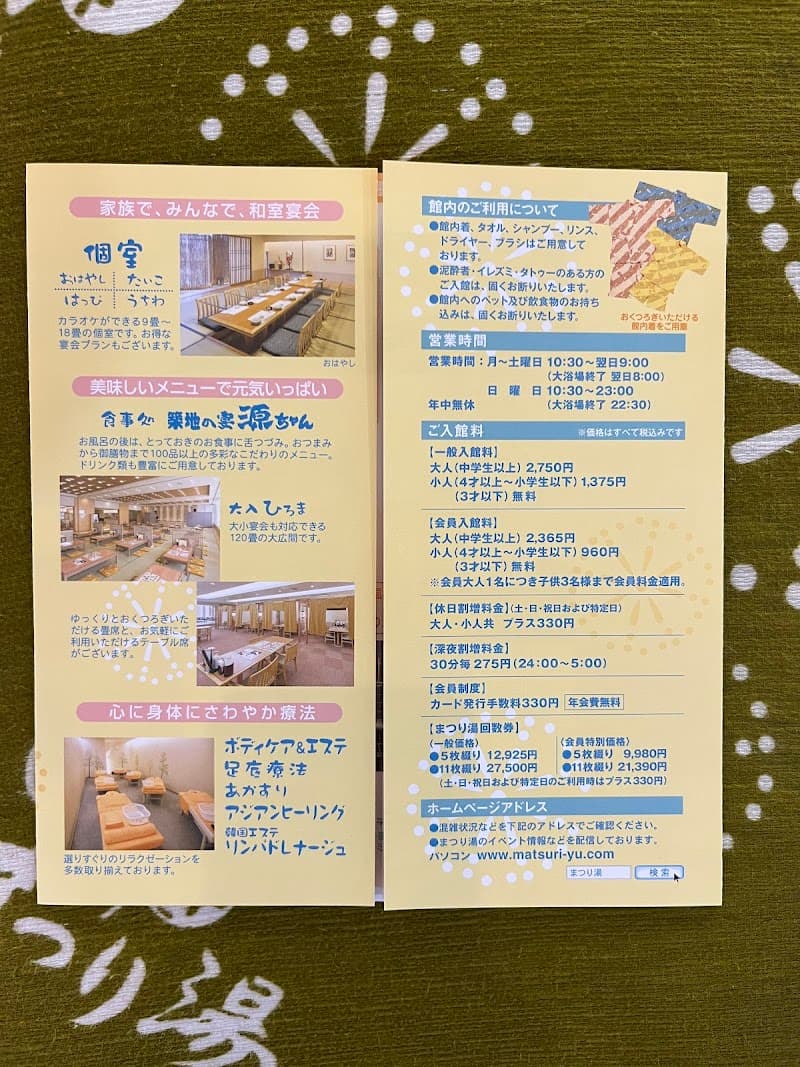 家族で、みんなで、和室宴会
個室
おはやし たいこ
はっぴ うちわ
カラオケができる9畳〜
18畳の個室です。お得な
宴会プランもございます。
おはやし
美味しいメニューで元気いっぱい
食事処 築地の宴 源ちゃん
お風呂の後は、とっておきのお食事に舌つづみ。おつまみ
から御膳物まで100品以上の多彩なこだわりのメニュー。
ドリンク類も豊富にご用意しております。
大入ひろま
大小宴会も対応できる
120畳の大広間です。
ゆっくりとおくつろぎいた
だける畳席と、お気軽にご
利用いただけるテーブル席
がございます。
心に身体にさわやか療法
ボディケア&エステ
足底療法
あかすり
アジアンヒーリング
韓国エステ
リンパドレナージュ
選りすぐりのリラクゼーションを
多数取り揃えております。
館内のご利用について
●館内着、タオル、シャンプー、リンス、
ドライヤー、ブラシはご用意して
おります。
●泥酔者・イレズミ・タトゥーのある方の
ご入館は、固くお断りいたします。
●館内へのペット及び飲食物のお持ち
込みは、固くお断りいたします。
おくつろぎいただける
館内着をご用意
営業時間
営業時間:月〜土曜日 10:30〜翌日9:00
(大浴場終了 翌日8:00)
日 曜 日 10:30〜23:00
年中無休 (大浴場終了 22:30)
ご入館料 ※価格はすべて税込みです
【一般入館料】
大人(中学生以上) 2,750円
小人(4才以上〜小学生以下) 1,375円
(3才以下) 無料
【会員入館料】
大人(中学生以上) 2,365円
小人(4才以上〜小学生以下) 960円
(3才以下) 無料
※会員大人1名につき子供3名様まで会員料金適用。
【休日割増料金】(土・日・祝日および特定日)
大人・小人共 プラス330円
【深夜割増料金】
30分毎 275円(24:00〜5:00)
【会員制度】
カード発行手数料330円 年会費無料
【まつり湯回数券】
〈一般価格〉 〈会員特別価格〉
●5枚綴り 12,925円 ●5枚綴り 9,980円
●11枚綴り 27,500円 ●11枚綴り 21,390円
(土・日・祝日および特定日のご利用時はプラス330円)
ホームページアドレス
●混雑状況などを下記のアドレスでご確認ください。
●まつり湯のイベント情報などを配信しております。
パソコン www.matsuri-yu.com
まつり湯 検索
つり湯